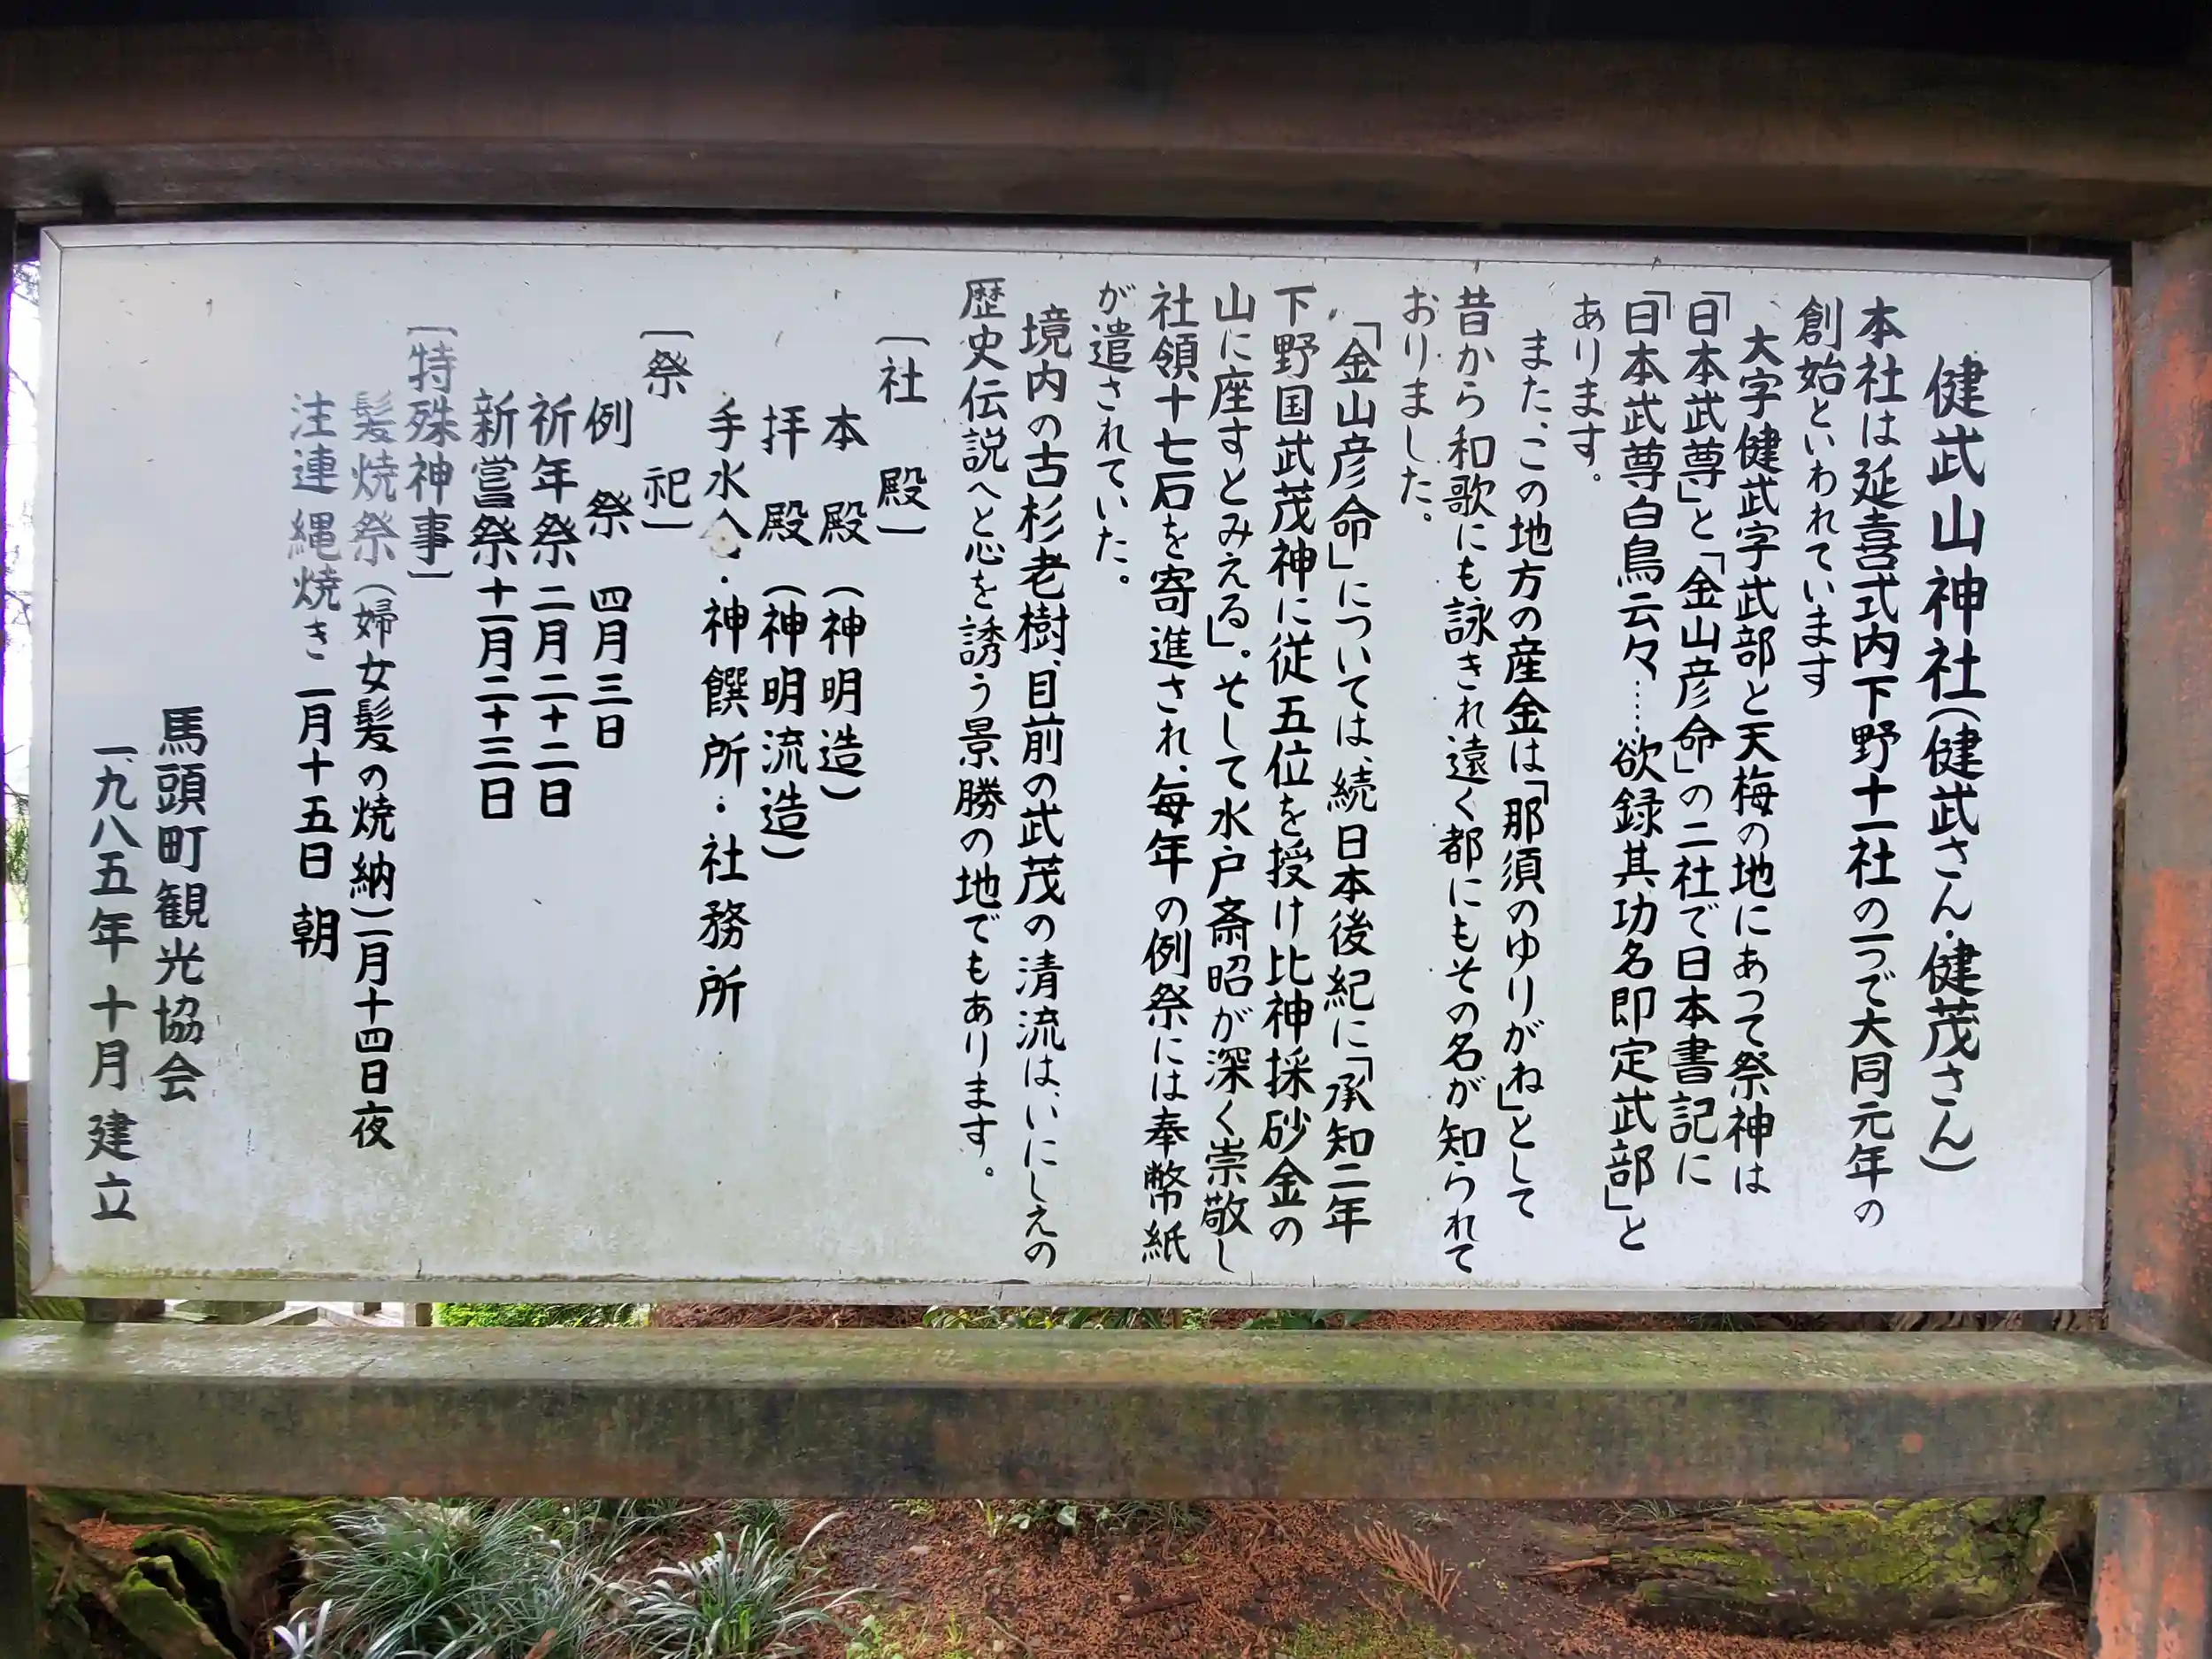 健武山神社(健武さん・健茂さん)
本社は延喜式内下野十一社の一つで大同元年の
創始といわれています
大字健武字武部と天梅の地にあって祭神は
「日本武尊」と「金山彦命」の二社で日本書記に
「日本武尊白鳥云々……欲録其功名即定武部」と
あります。
また、この地方の産金は「那須のゆりがね」として
昔から和歌にも詠きれ遠く都にもその名が知られて
おりました。
「金山彦命」については、続日本後紀に「承知二年
下野国武茂神に従五位を授け比神採砂金の
山に座すとみえる」。そして水戸斎昭が深く崇敬し
社領十七石を寄進され、毎年の例祭には奉幣紙
が遣されていた。
境内の古杉老樹、目前の武茂の清流は、いにしえの
歴史伝説へと心を誘う景勝の地でもあります。
〔社殿〕
本殿(神明造)
拝殿(神明流造)
手水・神饌所・社務所
〔祭祀〕
例祭 四月三日
祈年祭 二月二十二日
新嘗祭 十一月二十三日
〔特殊神事〕
髪焼祭(婦女髪の焼納)一月十四日夜
注連縄焼き 一月十五日 朝
馬頭町観光協会
一、九八五年十月建立